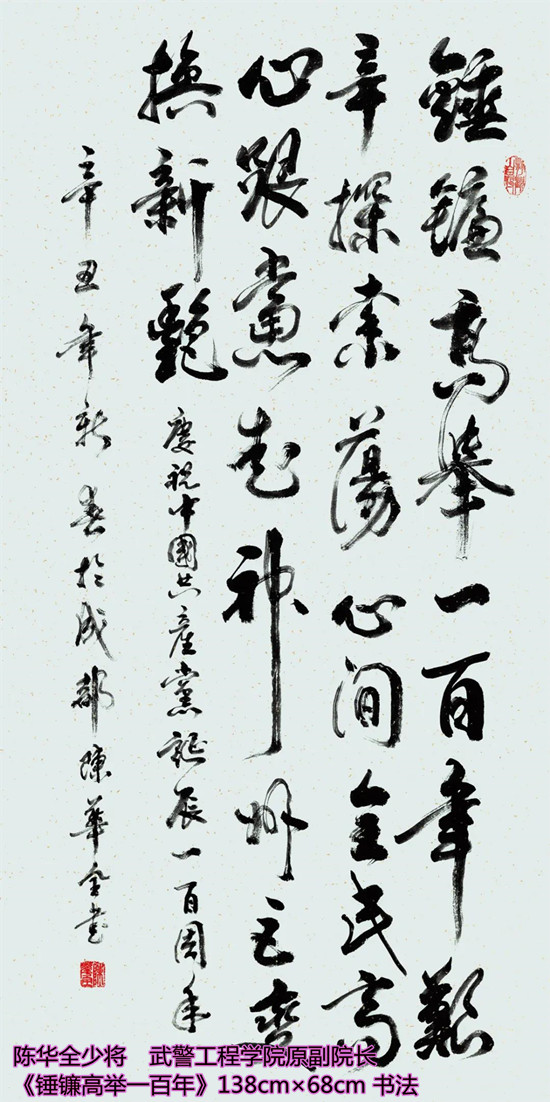 錘鐮高舉一百年艱
辛探索蕩心間全民齊
心跟黨走神州巨變
換新
慶祝中國共產黨誕辰一百周年
辛丑年新春於成都陳華全書
陈华全少将 武警工程学院原副院长
《锤镰高举一百年》138cm×68cm 书法